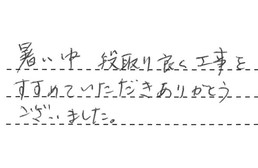 暑い中 段取り良く工事を
すすめていただきありがとう
ございました。